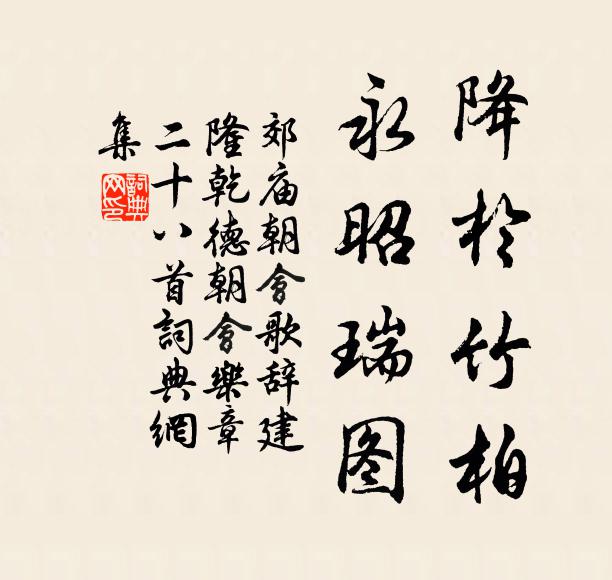 降於竹柏
永昭瑞图
郊庙朝會歌辞建
隆乾德朝會樂章
二十八首詞典網
集
詞典
网印